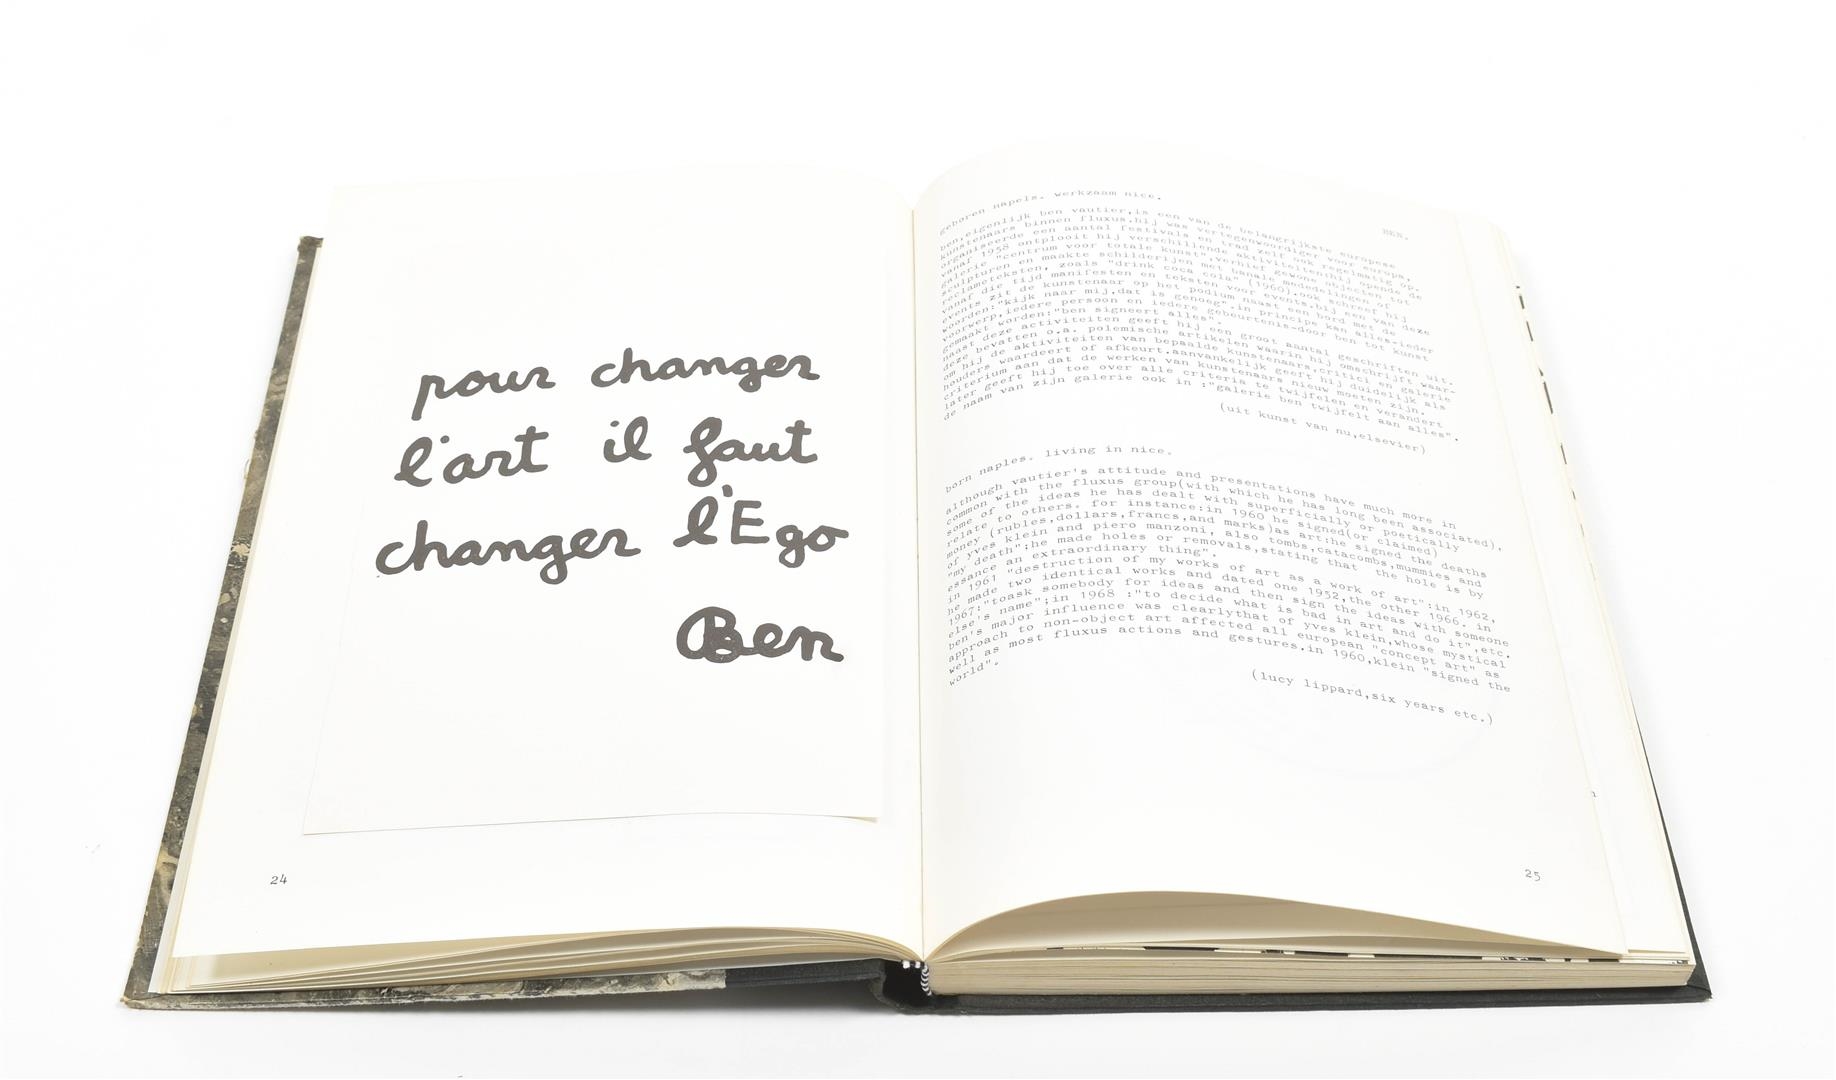 pour changer
l'art il faut
changer l'Ego
Ben
24
BEN.
geboren napels. werkzaam nice.
ben,eigenlijk ben vautier,is een van de belangrijkste europese
kunstenaars binnen fluxus.hij was vertegenwoordiger voor europa,
organiseerde een aantal festivals en trad zelf ook regelmatig op.
vanaf 1958 ontplooit hij verschillende aktiviteiten:hij opende de
galerie "centrum voor totale kunst",verhief gewone objecten tot
sculpturen en maakte schilderijen met banale mededelingen of
reclameteksten, zoals "drink coca cola" (1960).ook schreef hij
vanaf die tijd manifesten en teksten voor events.bij een van deze
events zit de kunstenaar op het podium naast een bord met de
woorden:"kijk naar mij,dat is genoeg".in principe kan alles-ieder
voorwerp,iedere persoon en iedere gebeurtenis-door ben tot kunst
gemaakt worden:"ben signeert alles".
naast deze activiteiten geeft hij een groot aantal geschriften uit.
deze bevatten o.a. polemische artikelen waarin hij omschrijft waar-
om hij de aktiviteiten van bepaalde kunstenaars,critici en galerie
houders waardeert of afkeurt.aanvankelijk geeft hij duidelijk als
criterium aan dat de werken van kunstenaars nieuw moeten zijn.
later geeft hij toe over alle criteria te twijfelen en verandert
de naam van zijn galerie ook in :"galerie ben twijfelt aan alles".
(uit kunst van nu,elsevier)
born naples. living in nice.
although vautier's attitude and presentations have much more in
common with the fluxus group(with which he has long been associated),
some of the ideas he has dealt with superficially or poetically
relate to others. for instance:in 1960 he signed(or claimed)
money (rubles,dollars,francs,and marks)as art:he signed the deaths
of yves klein and piero manzoni, also tombs,catacombs,mummies and
"my death";he made holes or removals,stating that the hole is by
essance an extraordinary thing".
in 1961 "destruction of my works of art as a work of art":in 1962,
he made two identical works and dated one 1952,the other 1966. in
1967:"toask somebody for ideas and then sign the ideas with someone
else's name";in 1968 :"to decide what is bad in art and do it",etc.
ben's major influence was clearlythat of yves klein,whose mystical
approach to non-object art affected all european "concept art" as
well as most fluxus actions and gestures.in 1960,klein "signed the
world".
(lucy lippard,six years etc.)
25